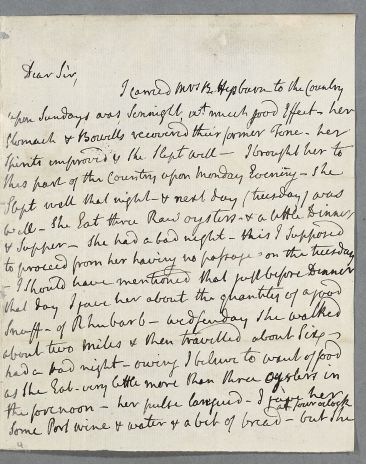 Dear Sir,
I carried Mrs B. Hepburn to the Country
upon Sundays was Sennight wt. much good Effect - her
Stomach & Bowells recovered their former Tone - her
Spirits improved & she Slept well - I brought her to
this part of the Country upon Monday Evening - She
Slept well that night - & next day (tuesday) was
well - She Eat three Raw oysters - & a little Dinner
& Supper - She had a bad night - this I Supposed
to proceed from her having no passage on the tuesday
- I should have mentioned that just before Dinner
that day I gave her about the quantity of a good
Snuff - of Rhubarb - wedsenday she walked
about two miles & then travelled about Six -
had a bad night - owing I beleive to want of food
as she Eat very little more than three oysters in
the forenoon - her pulse languid - I gave her
at four o'clock
Some Port wine & water & a bit of bread - but she